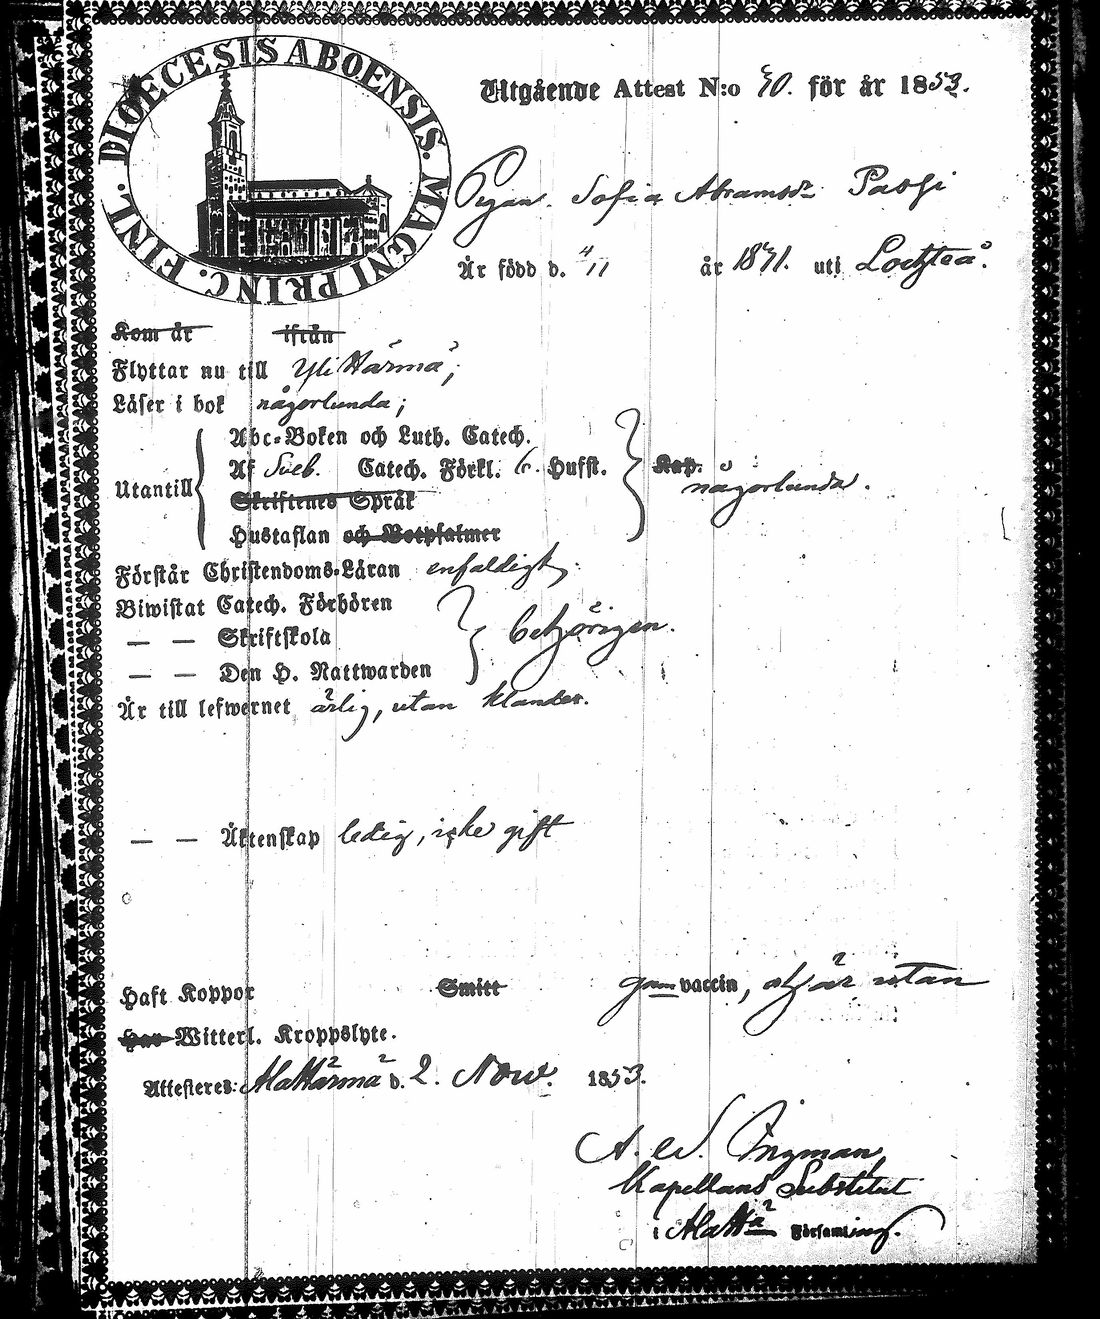 DIOECESIS ABOENSIS. MAGNI PRINC. FINL.
Utgående Attest N:o 40. för år 1853.
Pigan. Sofia Abramsdr Passi
Är född d. 4/11 år 1841. uti Lochteå.
Kom år ifrån
Flyttar nu till Yli Härmä;
Läser i bok någorlunda;
Abc-Boken och Luth. Catech.
Af Sveb. Catech. Förkl. 6. Hufst.
Utantill Kap. någorlunda.
Skriftenes Språk
Hustaflan och Botpsalmer
Förstår Christendoms-Läran enfaldigt,
Biwistat Catech. Förhören
— — Skriftskola behörigen.
— — Den H. Nattwarden
Är till lefwernet ärlig, utan klander.
— — Äktenskap ledig, icke gift
Haft Koppor Smitt gm vaccin, och är utan
Har Witterl. Kroppslyte.
Attesteres: AlaHärmä d. 2. Nov. 1853.
A. W. Ingman
Kapellans Substitut
i AlaHä Församling.